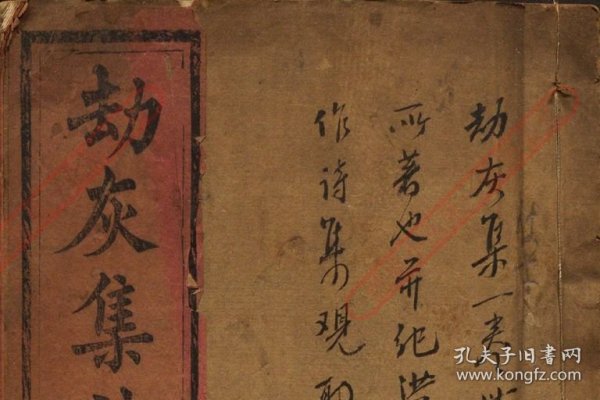 劫灰集
劫灰集一卷
所著也并纪
作诗集观
孔夫子旧书网
www.kongfz.com